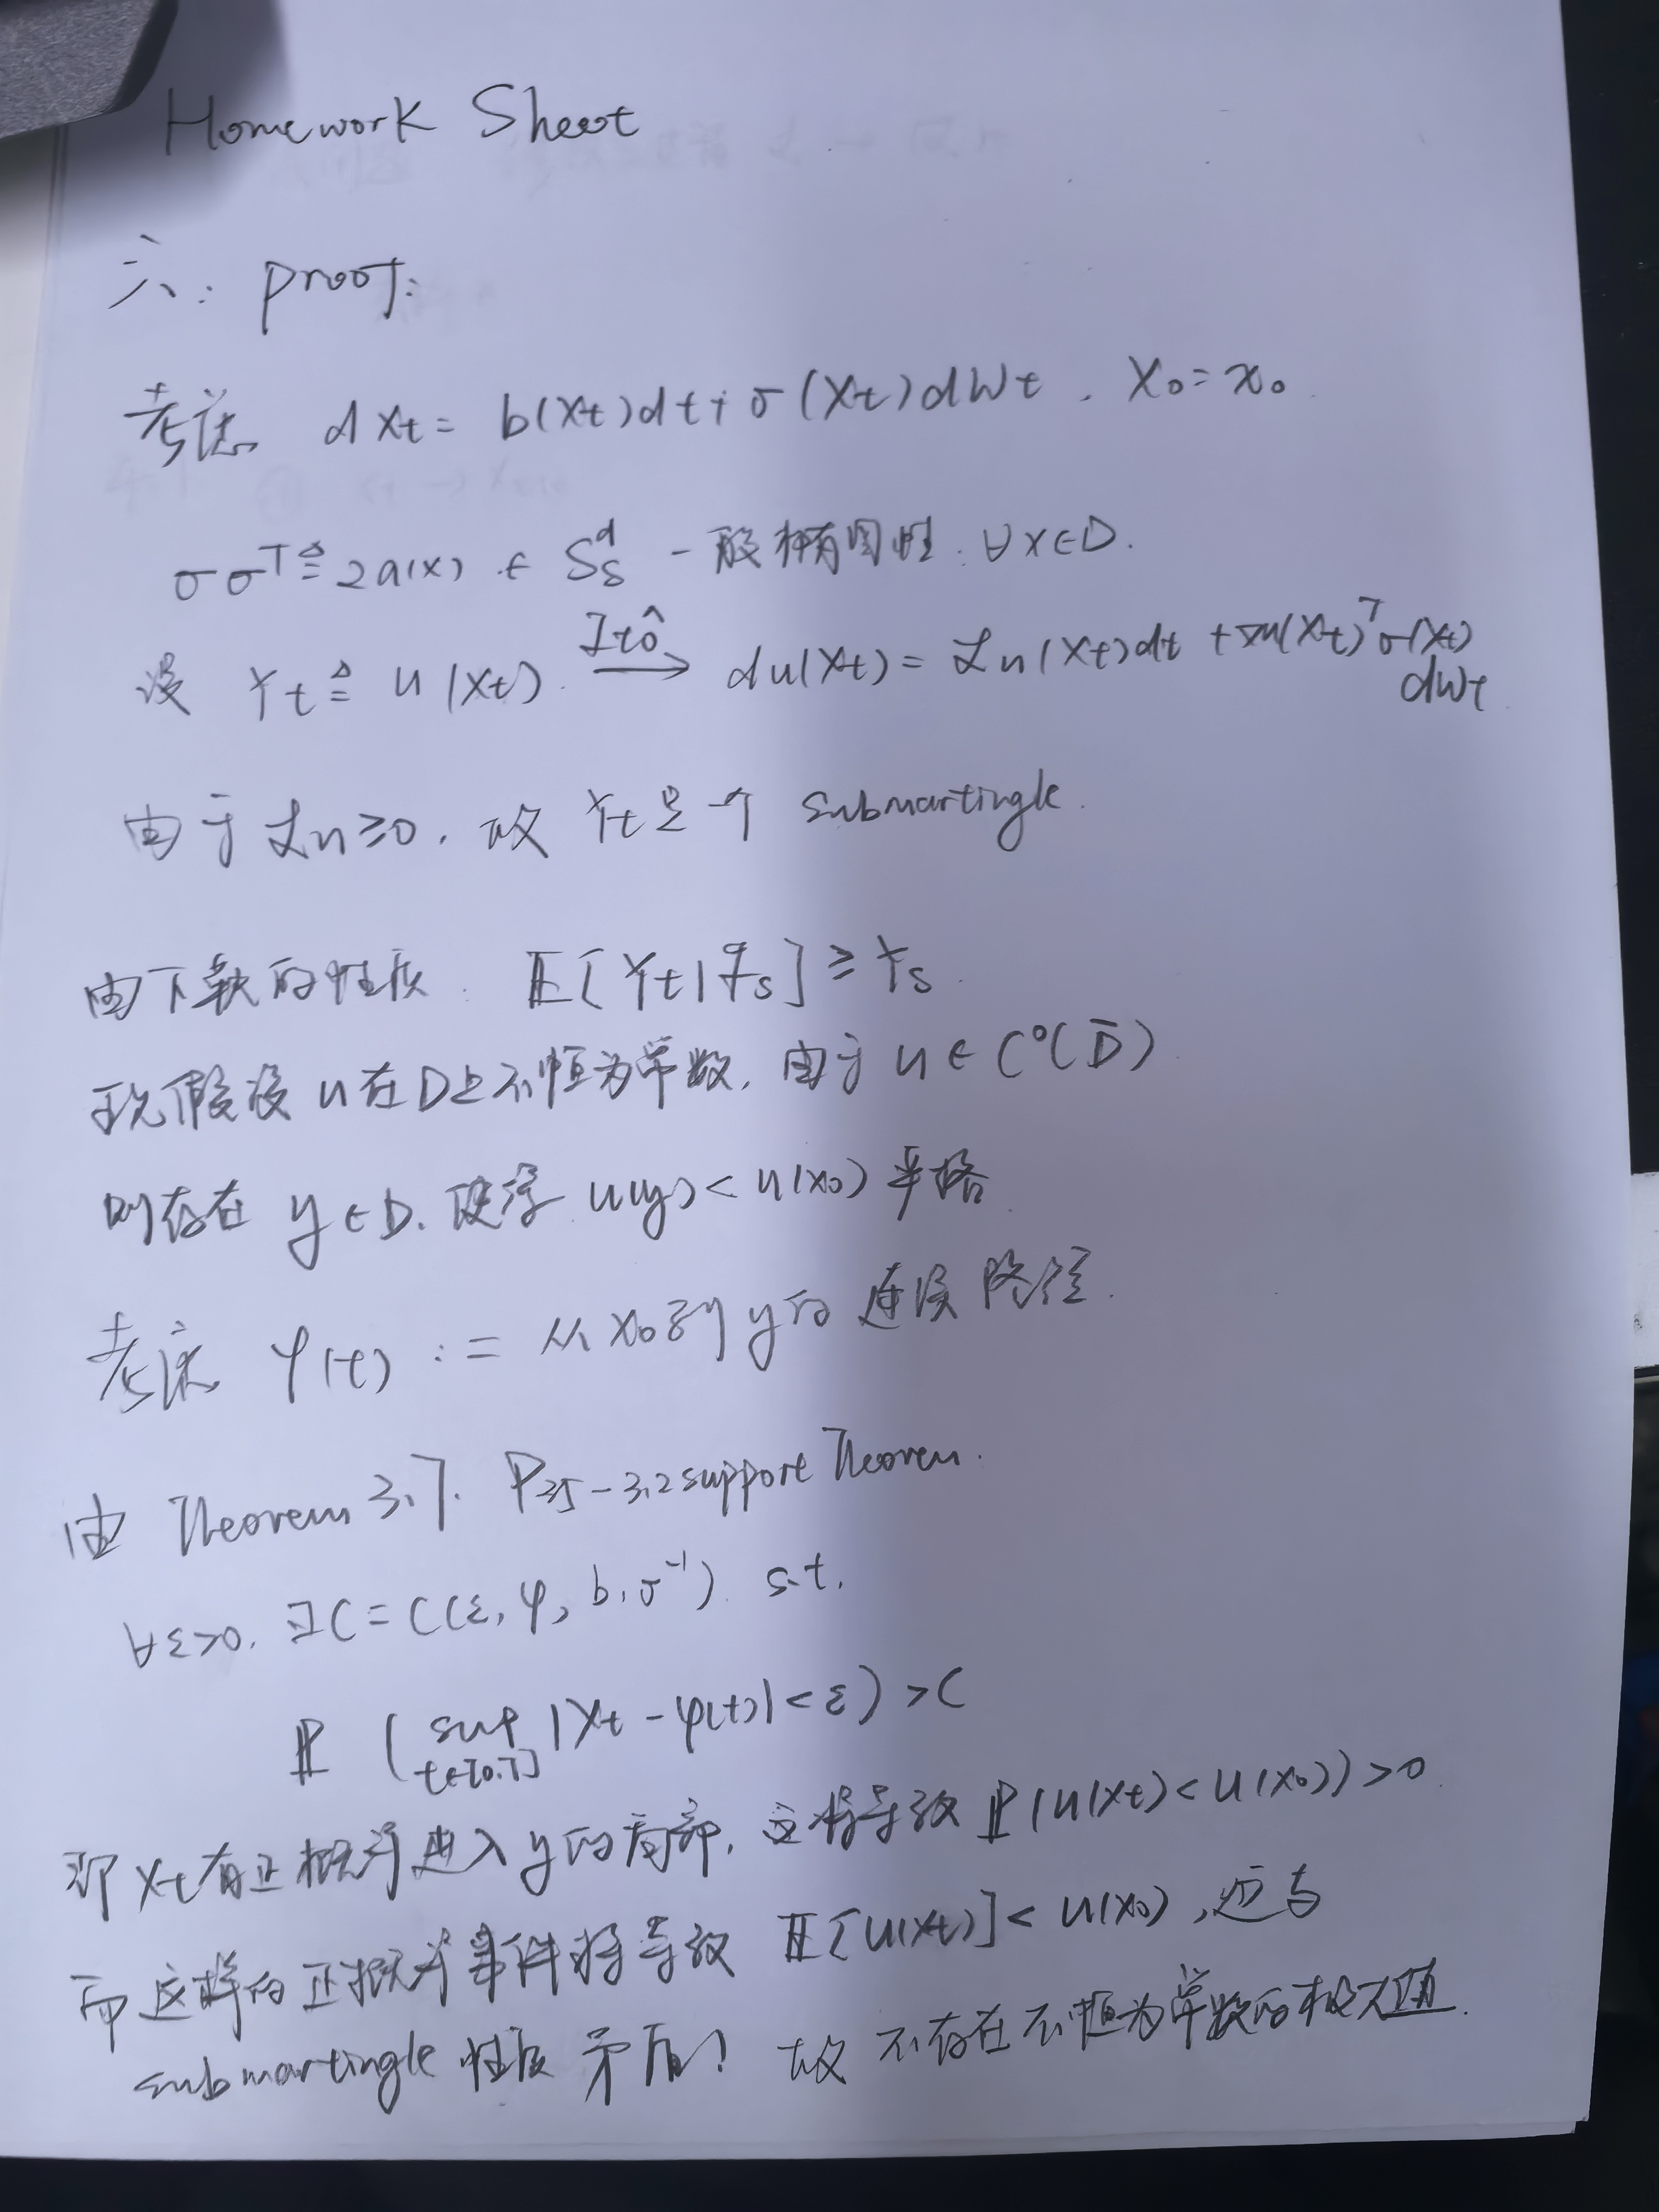 Homework Sheet
六: proof:
考虑 dXt = b(Xt)dt + σ(Xt)dWt. X0 = x0
σσ^T ≜ 2a(x) ∈ S_δ^d 一般椭圆性. ∀x∈D.
设 Yt ≜ u(Xt). Itô⟶ du(Xt) = ℒu(Xt)dt + ∇u(Xt)^T σ(Xt)
dWt
由于 ℒu≥0, 故 Yt是一个 submartingle.
由下鞅的性质. 𝔼[Yt|ℱs] ≥ Ys
现假设 u在D上不恒为常数, 由于 u∈C⁰(D̄)
则存在 y∈D. 使得 u(y) < u(x0) 严格
考虑 φ(t) := 从x0到y的连续路径.
由 Theorem 3.7. P35-3.2 support Theorem.
∀ε>0, ∃C = C(ε, φ, b, σ⁻¹) s.t.
ℙ (sup_{t∈[0,T]} |Xt - φ(t)| < ε) > C
即Xt有正概率进入y的局部, 这将导致 ℙ(u(Xt) < u(x0)) > 0
而这样的正概率事件将导致 𝔼[u(Xt)] < u(x0), 这与
submartingle 性质矛盾! 故 不存在不恒为常数的极大值.